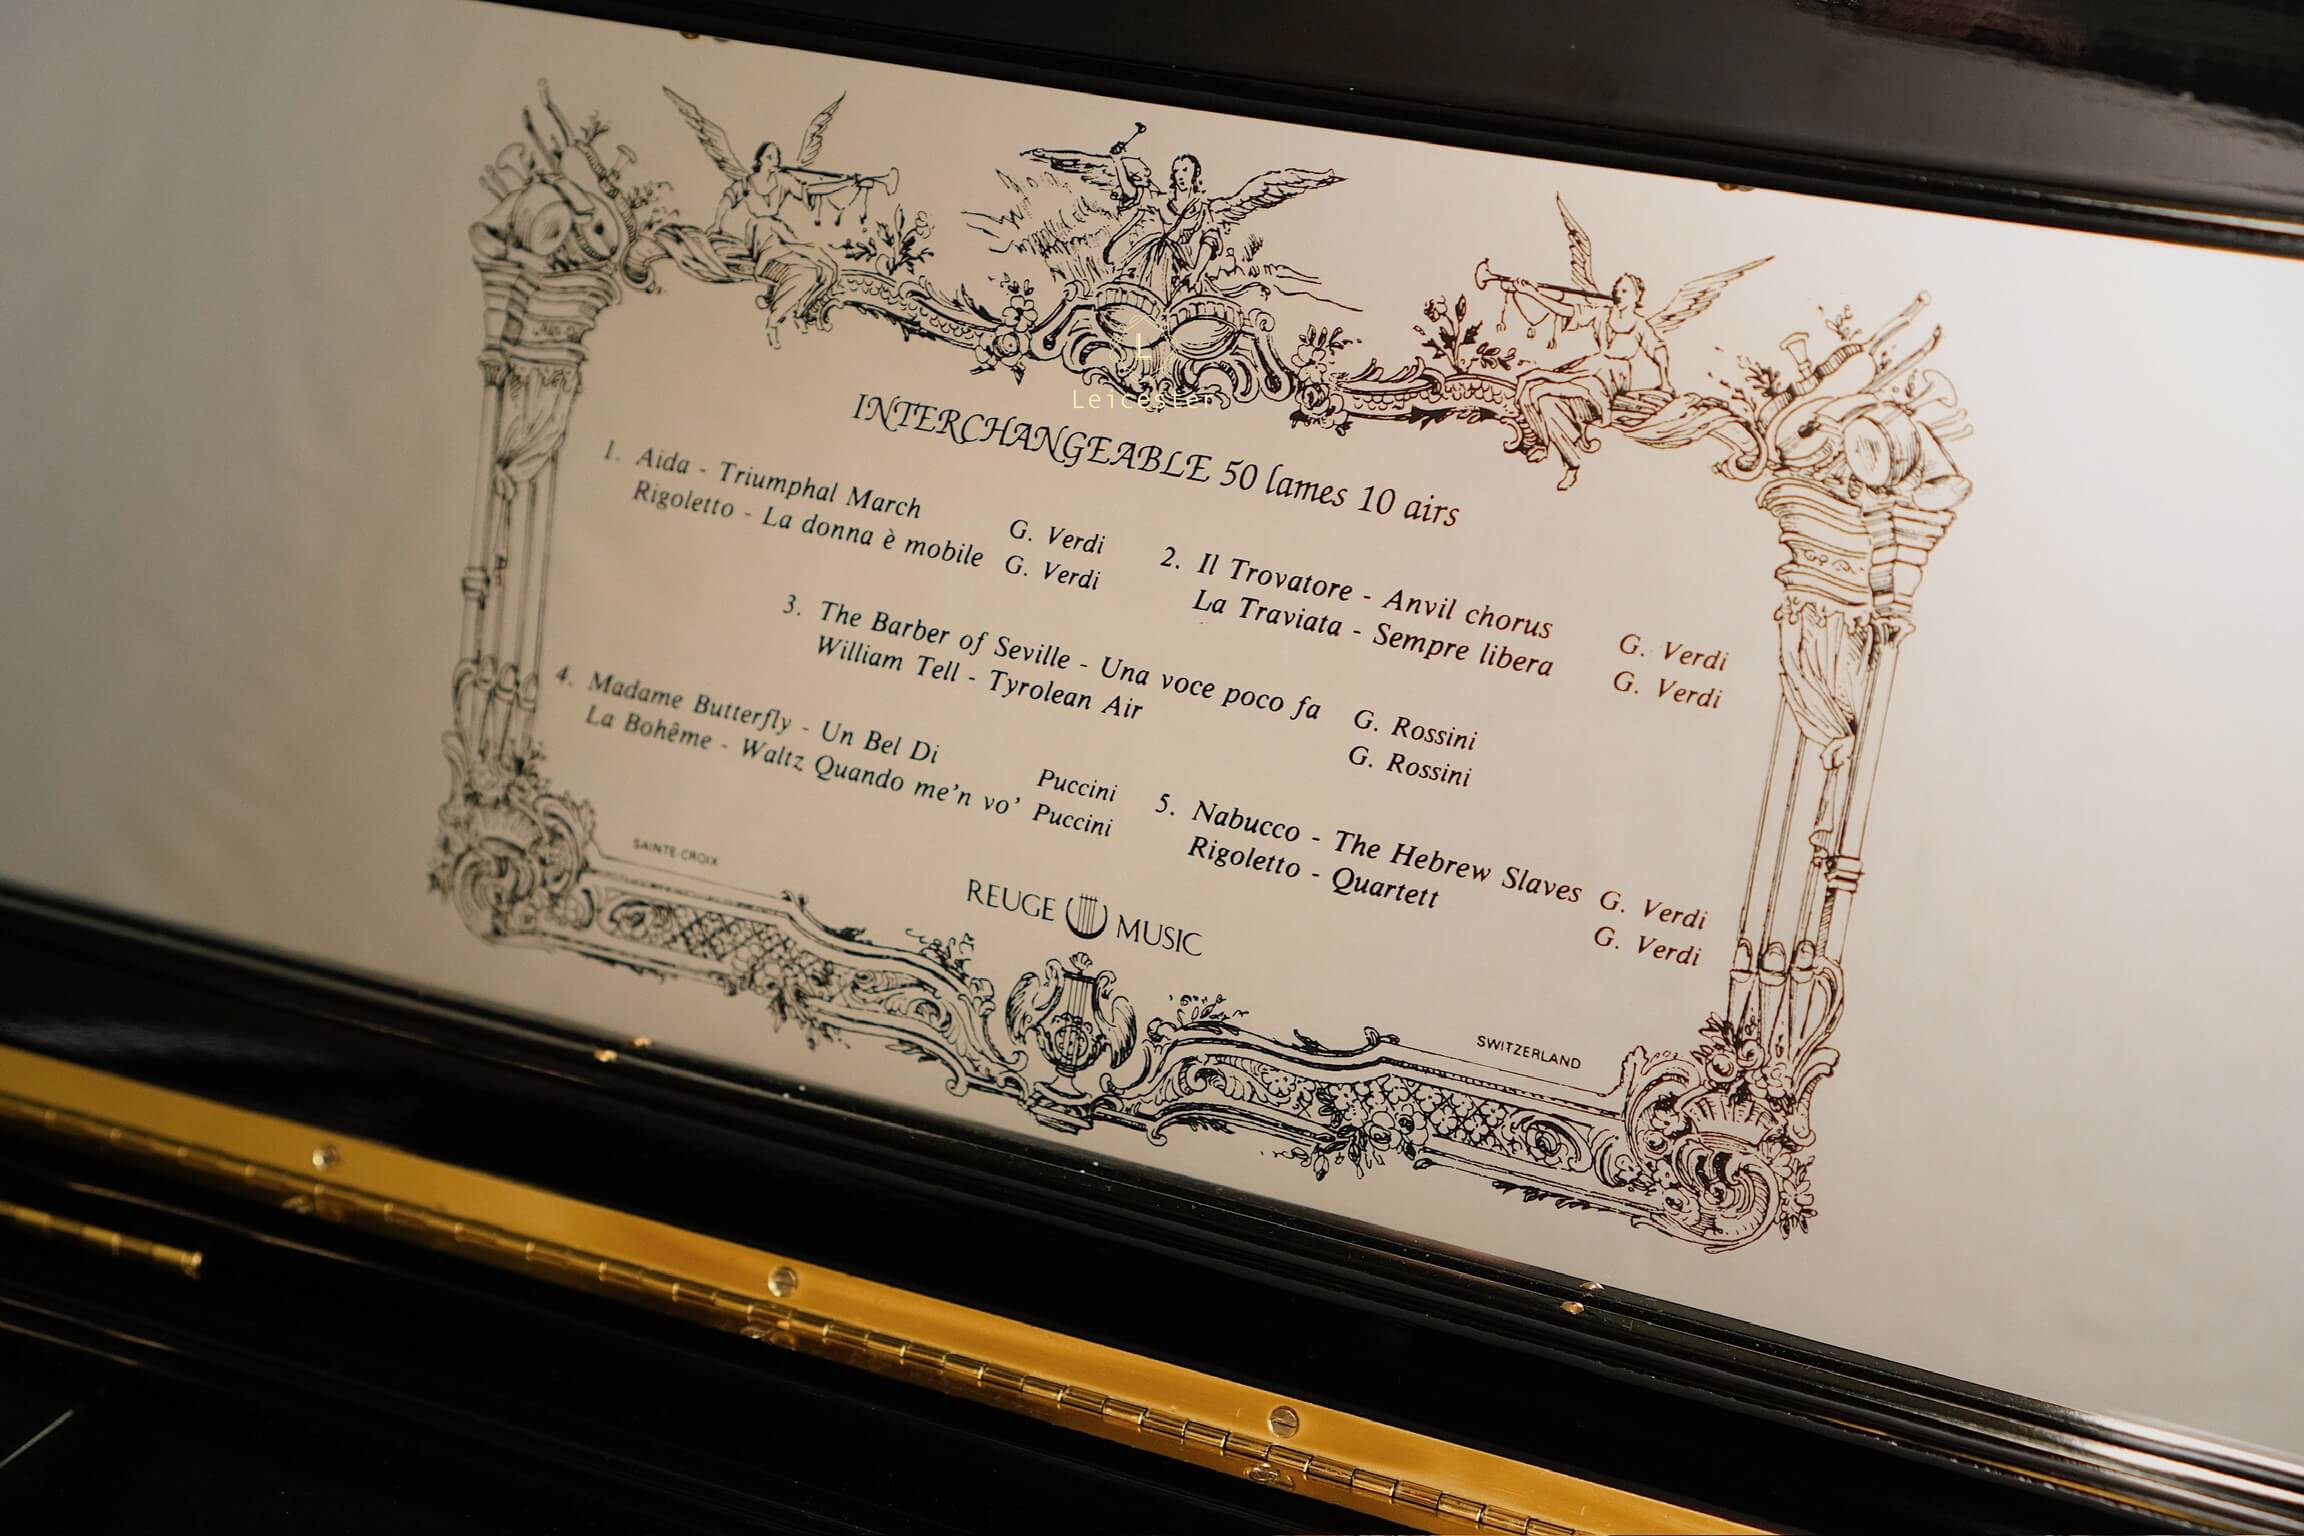 L
Leicester
INTERCHANGEABLE 50 lames 10 airs
1. Aida - Triumphal March G. Verdi
Rigoletto - La donna è mobile G. Verdi
2. Il Trovatore - Anvil chorus G. Verdi
La Traviata - Sempre libera G. Verdi
3. The Barber of Seville - Una voce poco fa G. Rossini
William Tell - Tyrolean Air G. Rossini
4. Madame Butterfly - Un Bel Di Puccini
La Bohême - Waltz Quando me'n vo' Puccini
5. Nabucco - The Hebrew Slaves G. Verdi
Rigoletto - Quartett G. Verdi
SAINTE-CROIX
REUGE MUSIC
SWITZERLAND